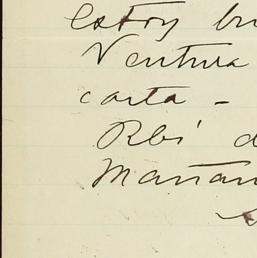 estoy bu
Ventura
carta -
Rbi d
Mañan